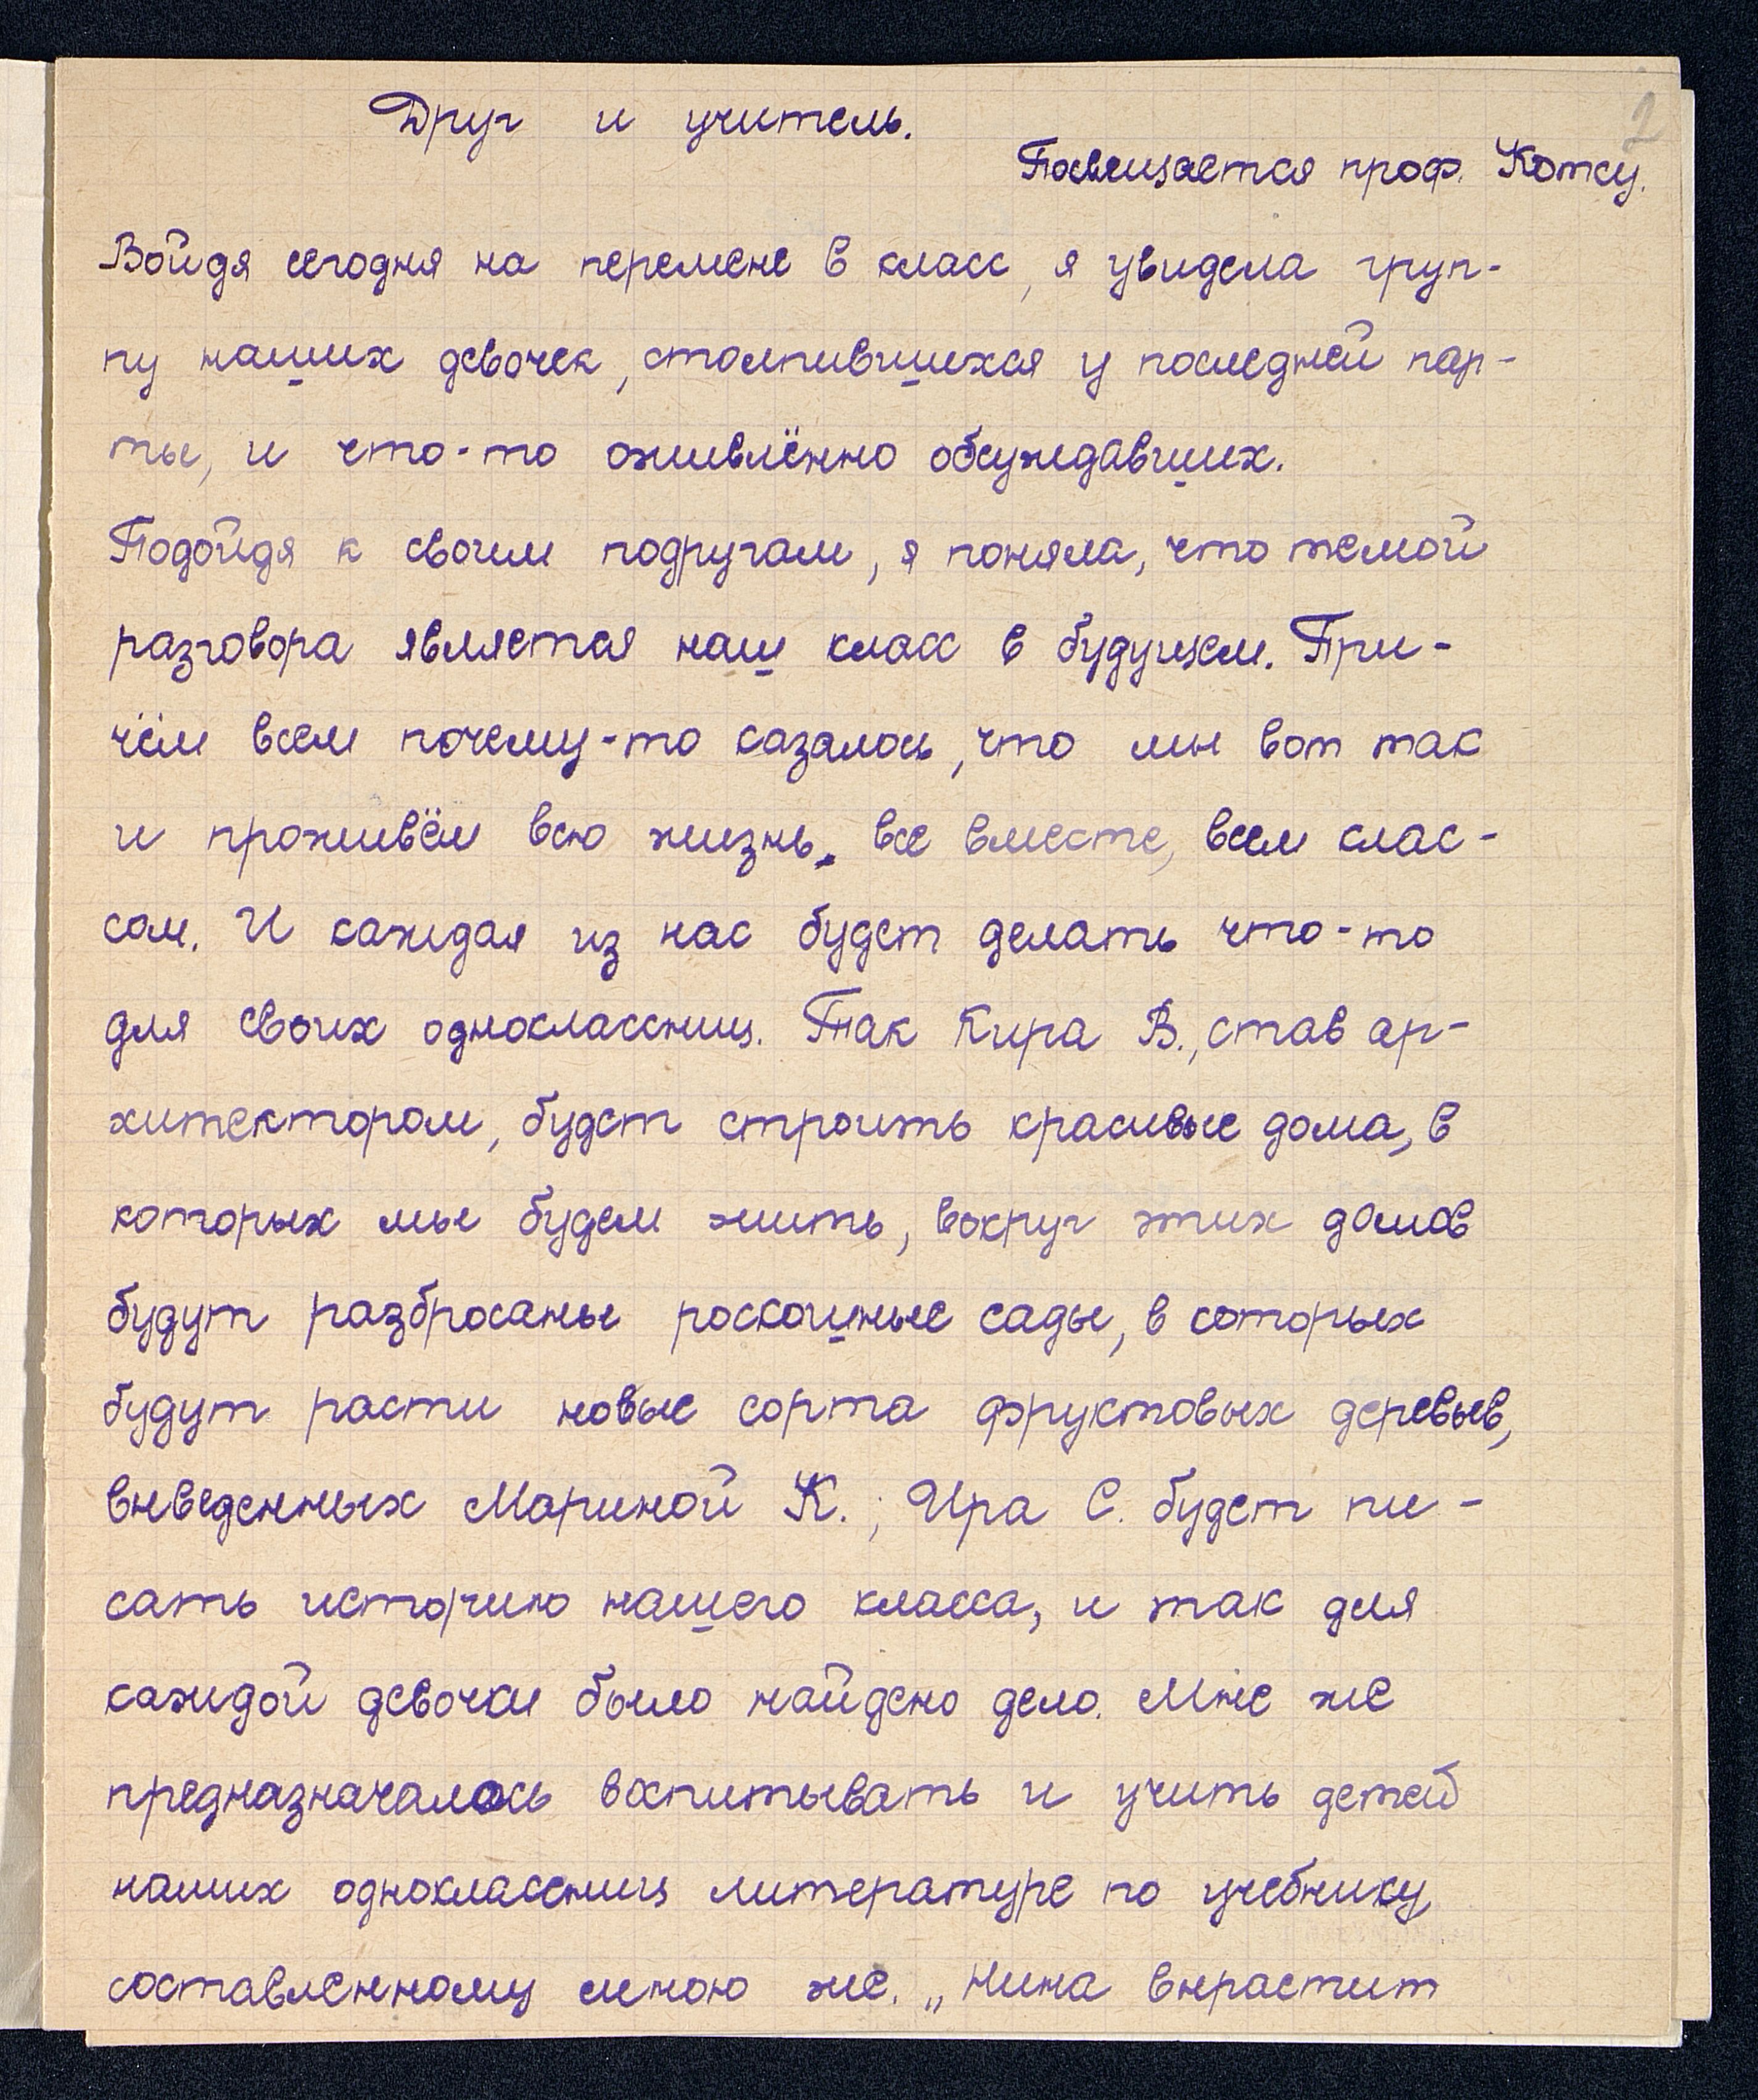 2
Друг и учитель.
Посвещается проф. Котсу.
Войдя сегодня на перемене в класс, я увидела груп-
пу наших девочек, столпившихся у последней пар-
ты, и что-то оживлённо обсуждавших.
Подойдя к своим подругам, я поняла, что темой
разговора является наш класс в будущем. При-
чём всем почему-то казалось, что мы вот так
и проживём всю жизнь, все вместе, всем клас-
сом. И каждая из нас будет делать что-то
для своих одноклассниц. Так Кира В., став ар-
хитектором, будет строить красивые дома, в
которых мы будем жить, вокруг этих домов
будут разбросаны роскошные сады, в которых
будут расти новые сорта фруктовых деревьев,
выведенных Мариной К.; Ира С. будет пи-
сать историю нашего класса, и так для
каждой девочки было найдено дело. Мне же
предназначалось воспитывать и учить детей
наших одноклассниц литературе по учебнику
составленному мною же. „Нина вырастит